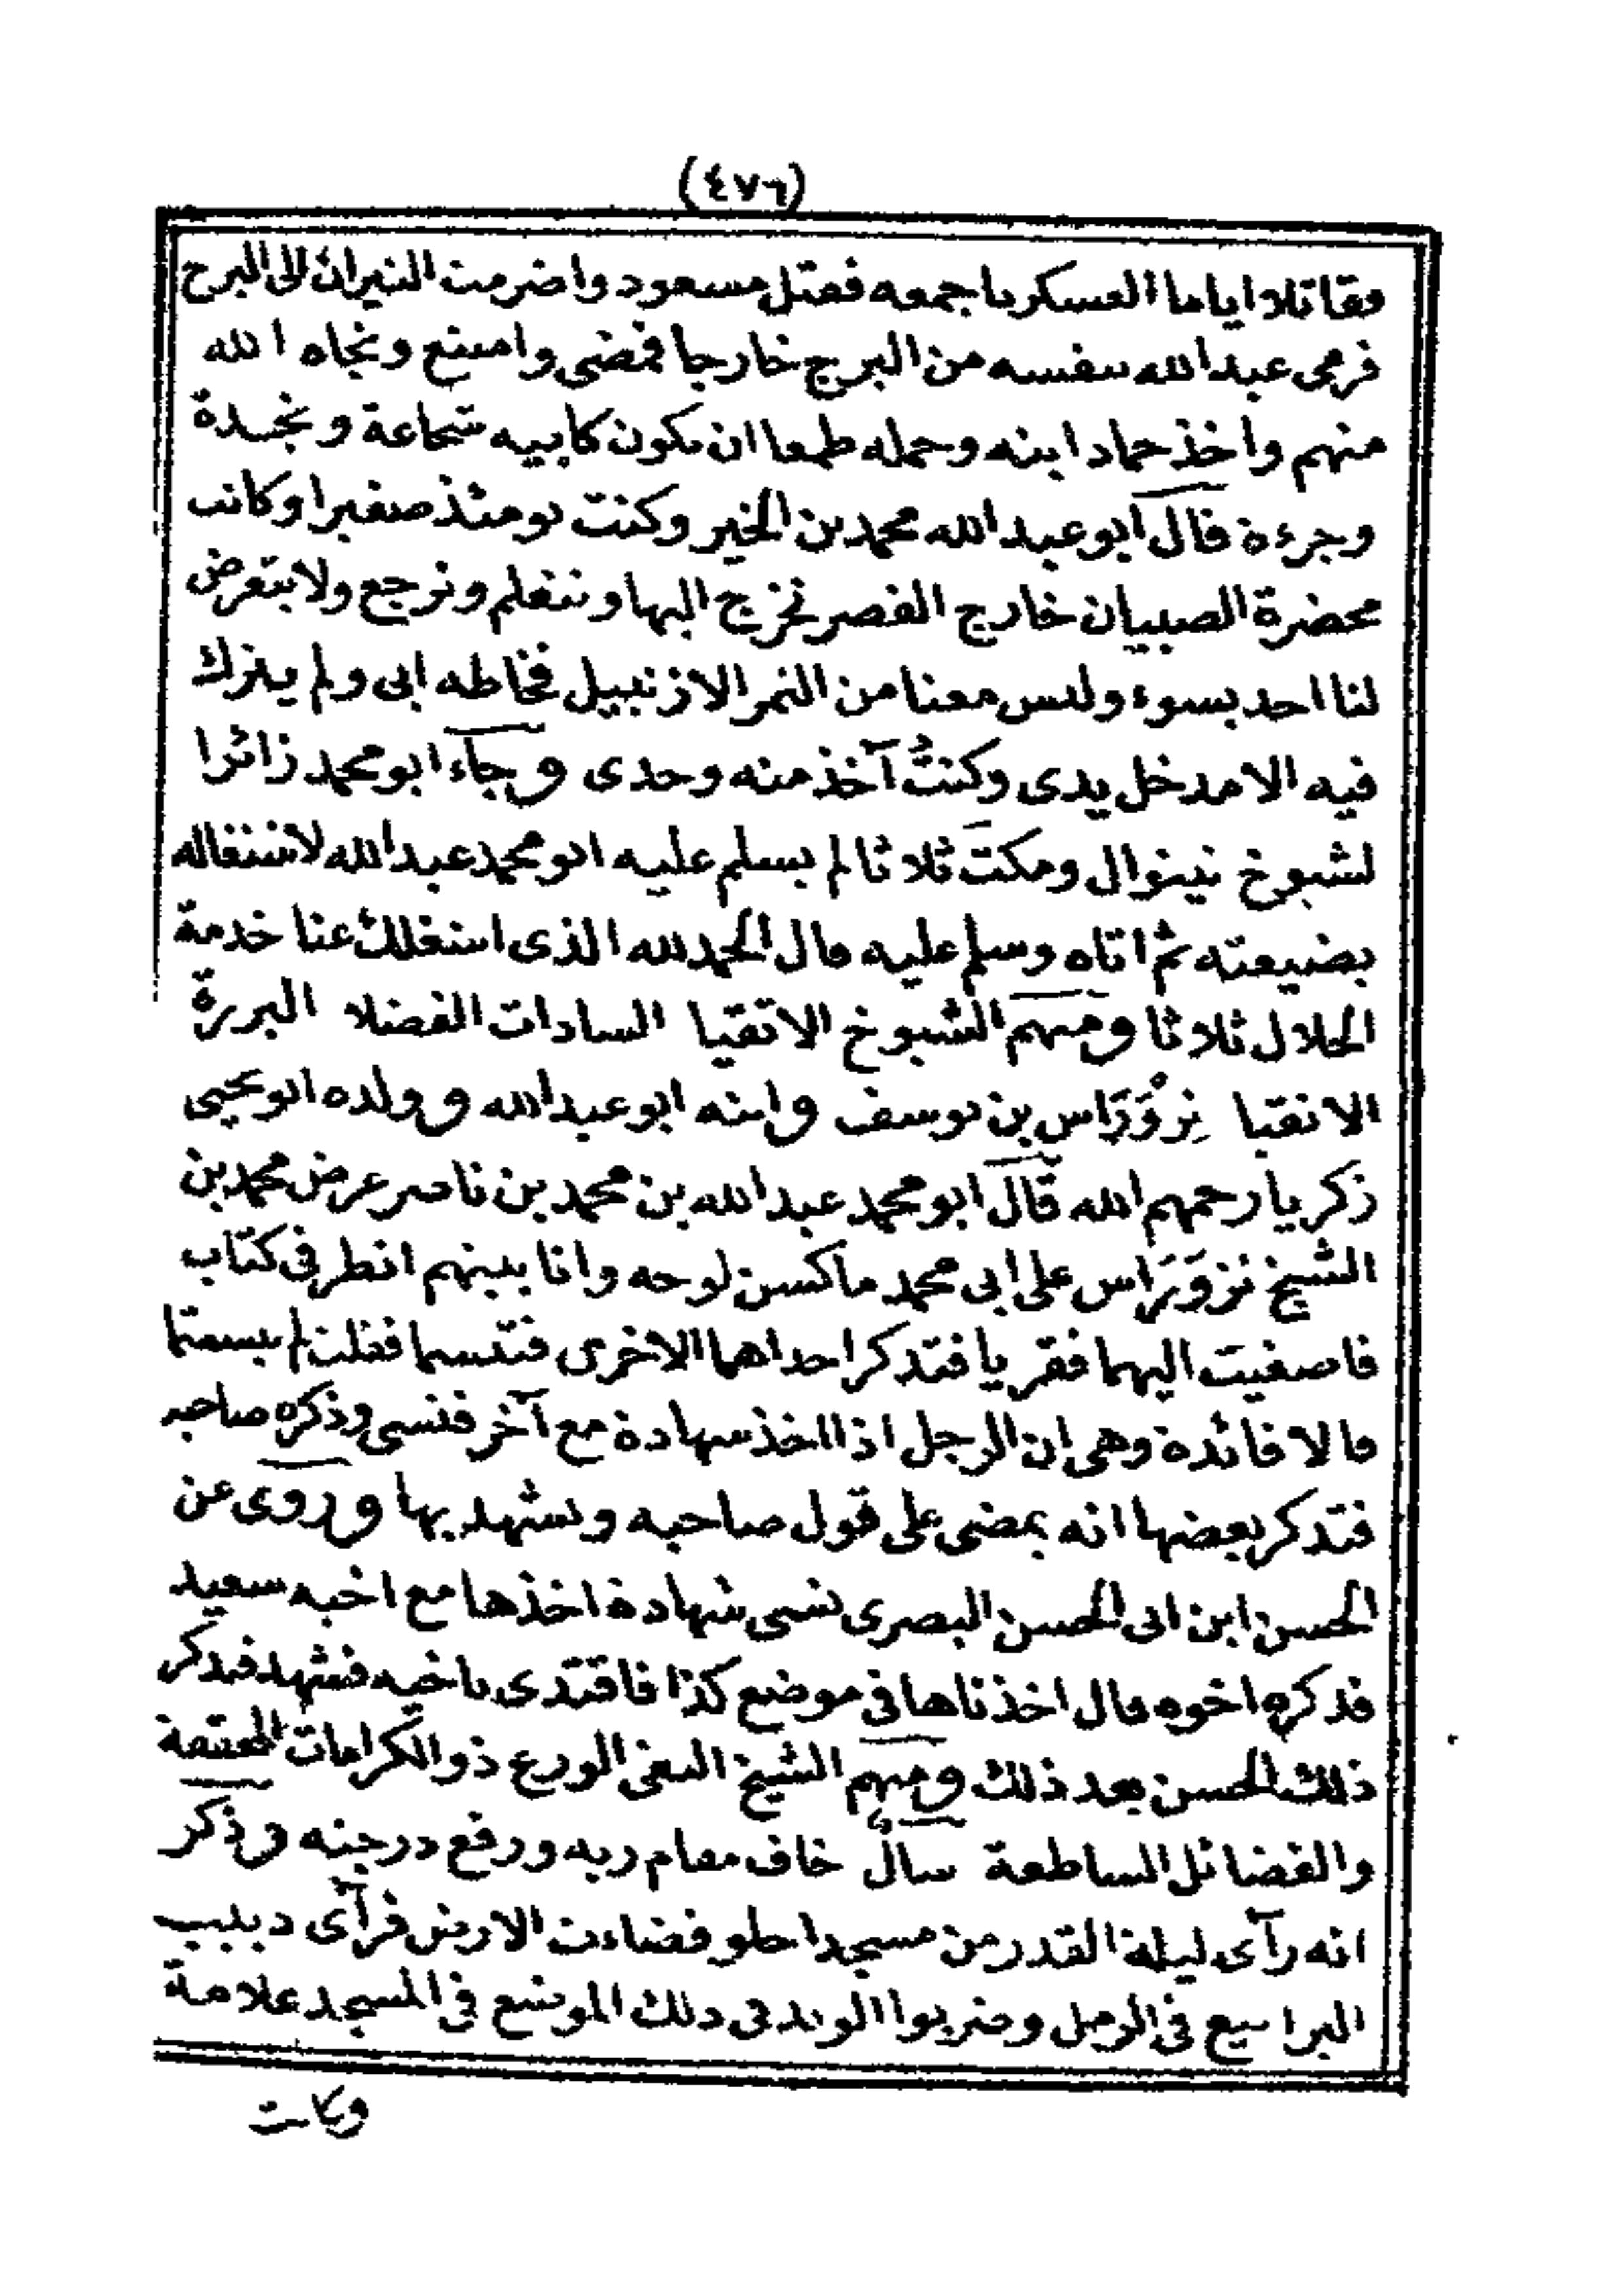 (٤٧٦)
فقاتلا اياما العسكر باجمعه فقتل مسعود واضرمت النيران الى البرج
فرمى عبدالله بنفسه من البرج خارجا فمضى وامتنع ونجاه الله
منهم واخذ حماد ابنه وحمله طمعا ان يكون كابيه شجاعة ونجدة
وجرءة قال ابو عبدالله محمد بن الخير وكنت يومئذ صغيرا وكانت
محضرة الصبيان خارج القصر نخرج اليها ونتعلم ونرجع ولا يتعرض
لنا احد بسوء وليس معنا من التمر الا زنبيل فخاطه ابى ولم يترك
فيه الا مدخل يدى وكنتُ آخذ منه وحدى وجآء ابو محمد زائرا
لشيوخ تينوال ومكث ثلاثا لم يسلم عليه ابو محمد عبدالله لاشتغاله
بضيعته ثم اتاه وسلم عليه قال الحمد لله الذى اشتغلك عنا خدمة
الحلال ثلاثا ومنهم الشيوخ الاتقيا السادات الفضلا البررة
الاتقيا نِزْوَرَاس بن يوسف وابنه ابو عبدالله وولده ابو يحيى
زكريا رحمهم الله قال ابو محمد عبدالله بن محمد بن ناصر عرض محمد بن
الشيخ نزوَرَاس على ابى محمد ماكسن لوحه وانا بينهم انظر فى كتاب
فاصغيت اليهما فقريا فتذكر احداهما الاخرى فتبسما فقلت لم تبسمتما
قالا فائدة وهى ان الرجل اذا اخذ شهادة مع آخر فنسى وذكره صاحبه
فتذكر بعضها انه يمضى على قول صاحبه ويشهد بها وروى عن
الحسن ابن ابى الحسن البصرى نسى شهادة اخذها مع اخيه سعيد
فذكره اخوه قال اخذناها فى موضع كذا فاقتدى باخيه فشهد فتذكر
ذلك الحسن بعد ذلك ومنهم الشيخ التقى الورع ذو الكرامات
والفضائل الساطعة خاف مقام ربه ورفع درجته وذكر
انه رآى ليلة القدر من مسجد احلو فضاءت الارض فرآى دبيب
اليرابيع فى الرمل وضربوا الوتد فى ذلك الموضع فى المسجد علامة
وكانت